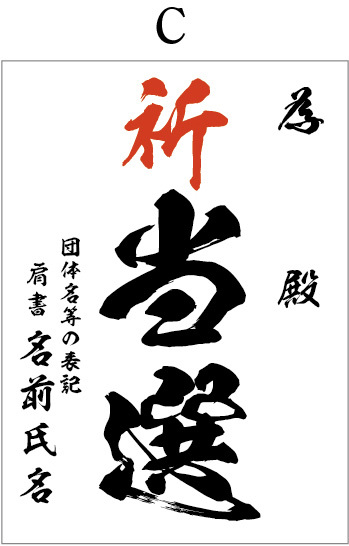 C
為 殿
祈当選
団体名等の表記
肩書 名前氏名